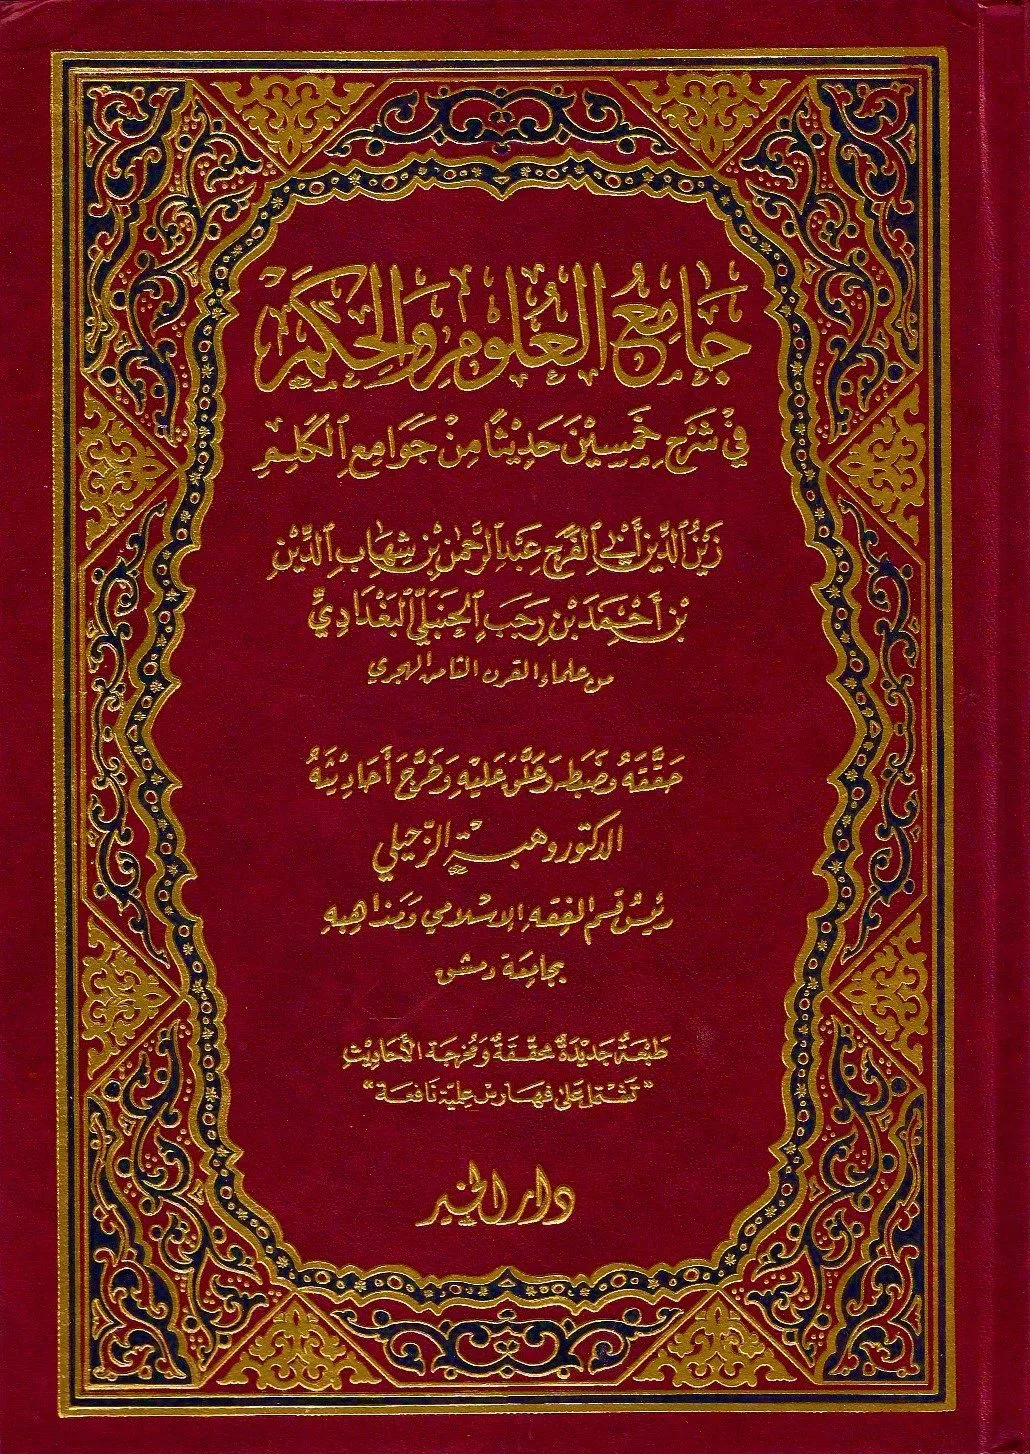 جَامِعُ العُلُومِ وَالحِكَمِ
فِي شَرْحِ خَمْسِينَ حَدِيْثًا مِنْ جَوَامِعِ الكَلِمِ
زَيْنُ الدِّين أَبِي الفَرَجِ عَبْدِ الرَّحْمٰنِ بْنِ شِهَابِ الدِّيْنِ
بْنِ أَحْمَدَ بْنِ رَجَبِ الحَنْبَلِيِّ البَغْدَادِيِّ
من علماء القرن الثامن الهجري
حَقَّقَهُ وضَبَطَه وَعَلَّقَ عَلَيْهِ وَخَرَّجَ أَحَادِيْثَهُ
الدكتور وهبة الزّحيلي
رئيس قسم الفقه الإسلامي ومذاهبه
بجامعة دمشق
طَبْعَةٌ جَدِيْدَةٌ مُحَقَّقَةٌ وَمُخَرَّجَة الأَحَادِيْثِ
"تَشْتَمِلُ عَلَى فهَارِس عِلمِيّة نَافِعَة"
دار الخير